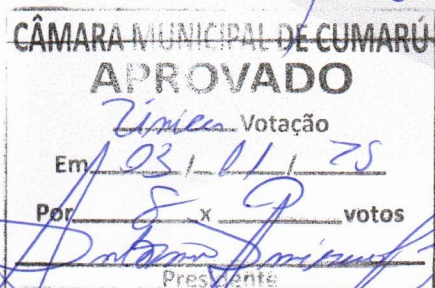 CÂMARA MUNICIPAL DE CUMARÚ
APROVADO
Única Votação
Em 03 / 01 / 25
Por 8 x votos
Presidente